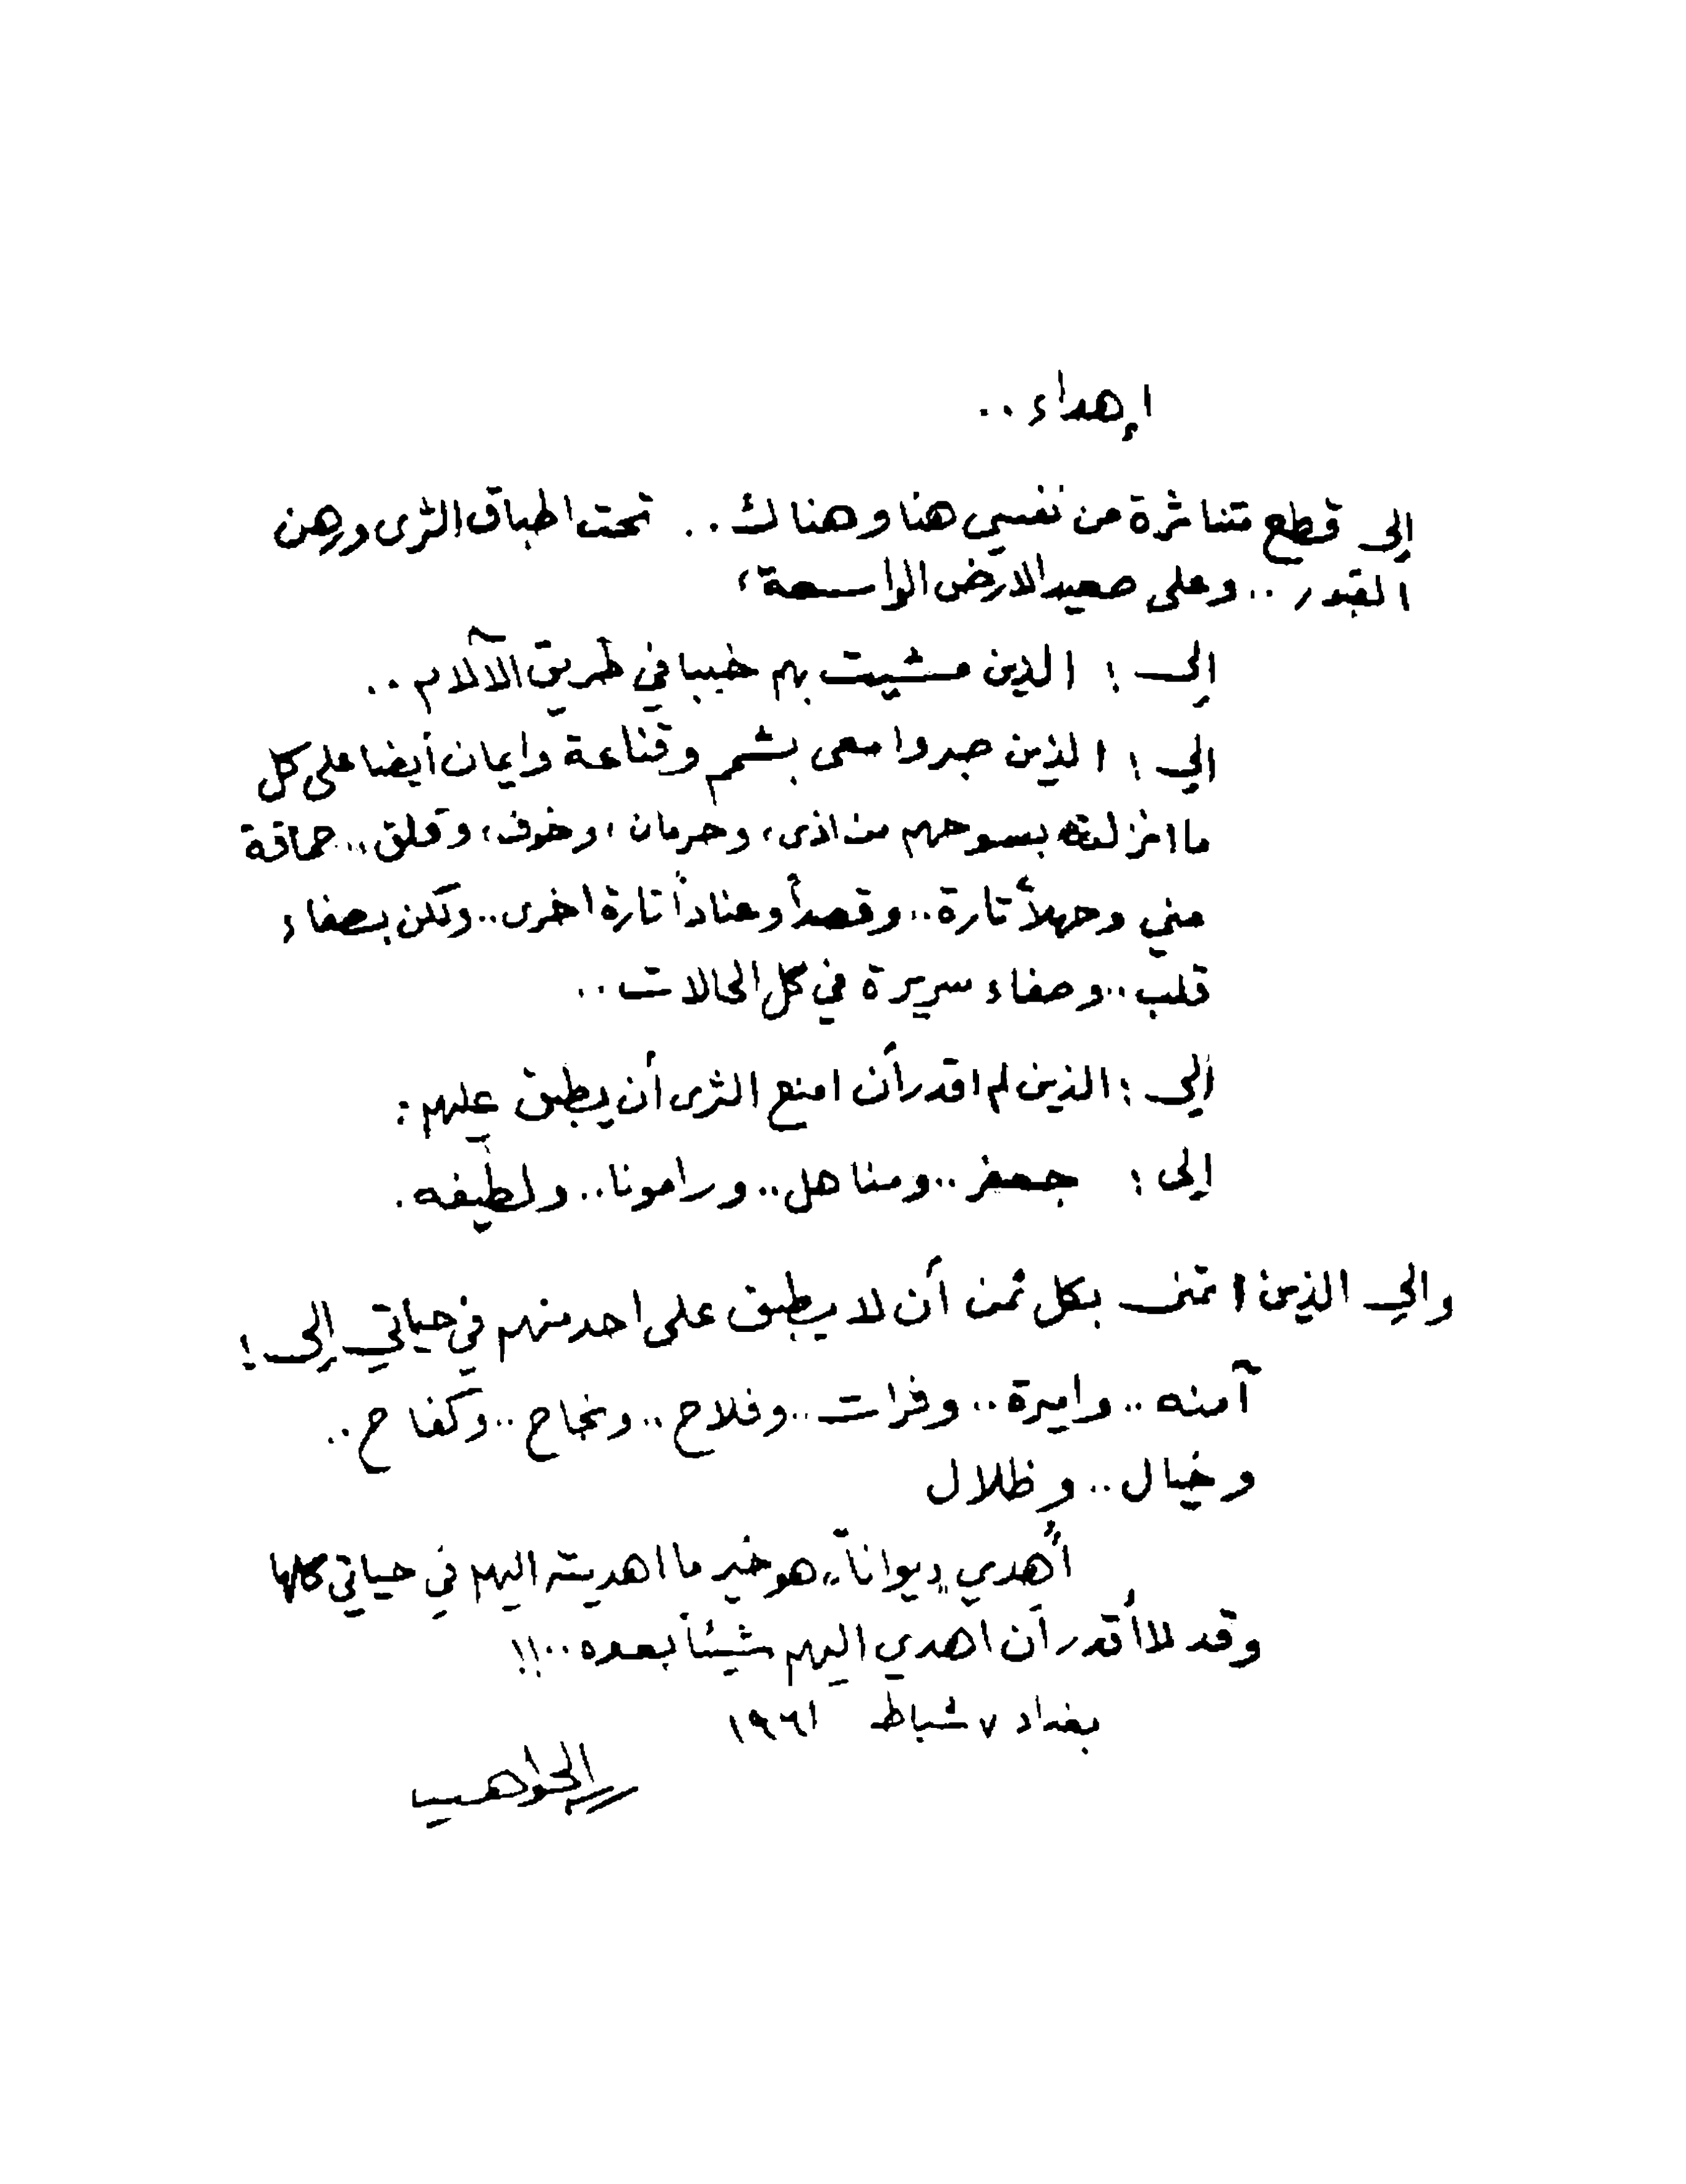 إهداء ..
إلى قطع متناثرة من نفسي هنا وهناك .. تحت اطباق الثرى ورهن
القبور .. وعلى صعيد الارض الواسعة ،
إلى : الذين مشيت بهم خببا في طريق الآلام ..
الى : الذين صبروا معي بشمم وقناعة وايمان أيضا على كل
ما انزلته بسوحهم من اذى ، وحرمان ، وخوف ، وقلق .. حماقة
مني وجهلاً تارة .. وقصداً وعناداً تارة اخرى .. ولكن بصفاء
قلب .. وصفاء سريرة في كل الحالات ..
إلى : الذين لم اقدر أن امنع الثرى أن يطبق عليهم :
إلى : جعفر .. ومناهل .. ورامونا .. ولطيفه .
والى الذين اتمنى بكل ثمن أن لا يطبق على احد منهم في حياتي إلى :
آمنه .. واميرة .. وفرات .. وفلاح .. ونجاح .. وكفاح ..
وخيال .. وظلال
أُهدي "ديواناً" هو خير ما اهديته اليهم في حياتي كلها
وقد لا أقدر أن اهدي اليهم شيئاً بعده .. !!
بغداد ٧ شباط ١٩٦١
الجواهري